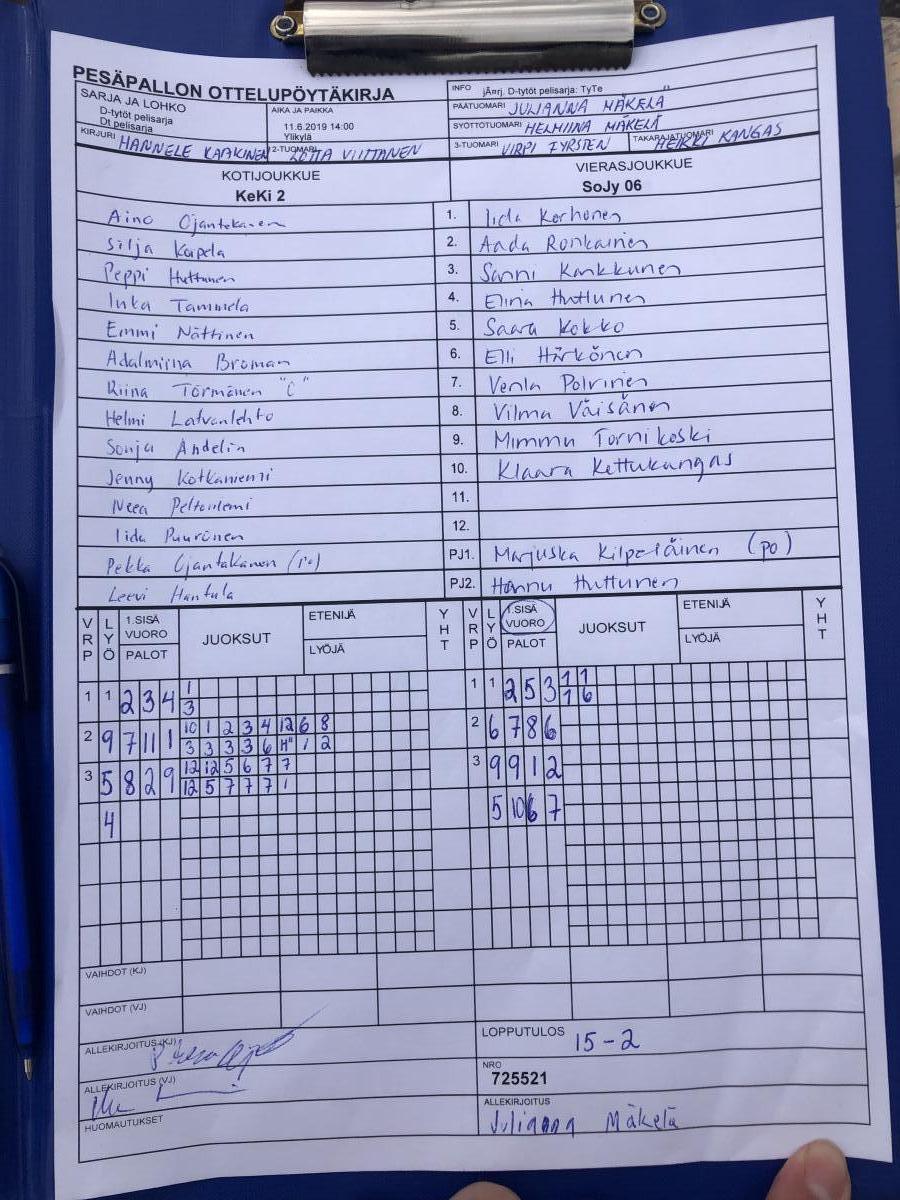 PESÄPALLON OTTELUPÖYTÄKIRJA
INFO jÃ¤rj. D-tytöt pelisarja: TyTe
SARJA JA LOHKO
D-tytöt pelisarja
Dt pelisarja
AIKA JA PAIKKA
11.6.2019 14:00
Ylikylä
PÄÄTUOMARI JULIANNA MÄKELÄ
SYÖTTÖTUOMARI HELMIINA MÄKELÄ
KIRJURI HANNELE KAAKINEN
2-TUOMARI LOTTA VIITTANEN
3-TUOMARI VIRPI FYRSTEN
TAKARAJATUOMARI HEIKKI KANGAS
KOTIJOUKKUE
KeKi 2
VIERASJOUKKUE
SoJy 06
Aino Ojantakanen 1. Iida Korhonen
Silja Karpela 2. Aada Ronkainen
Peppi Huttunen 3. Sanni Karkkunen
Inka Tammela 4. Elina Huttunen
Emmi Nättinen 5. Saara Kokko
Adalmiina Broman 6. Elli Härkönen
Riina Törmänen "C" 7. Venla Polvinen
Helmi Latvanlehto 8. Vilma Väisänen
Sonja Andelin 9. Mimmu Tornikoski
Jenny Kotkaniemi 10. Klaara Kettukangas
Neea Peltoniemi 11.
Iida Puurunen 12.
Pekka Ojantakanen (PO) PJ1. Marjuska Kilpeläinen (po)
Leevi Hantula PJ2. Hannu Huttunen
VRP LYÖ 1.SISÄ VUORO PALOT JUOKSUT ETENIJÄ LYÖJÄ YHT
VRP LYÖ 1.SISÄ VUORO PALOT JUOKSUT ETENIJÄ LYÖJÄ YHT
1 1 2 3 4 1
3
1 1 2 5 3 1 1
1 6
2 9 7 11 1 10 1 2 3 4 12 6 8
3 3 3 3 6 H" 1 2
2 6 7 8 6
3 5 8 2 9 12 12 5 6 7 7
12 5 7 7 7 1
3 9 9 1 2
4
5 10 6 7
VAIHDOT (KJ)
VAIHDOT (VJ)
ALLEKIRJOITUS (KJ)
LOPPUTULOS 15-2
ALLEKIRJOITUS (VJ)
NRO
725521
HUOMAUTUKSET
ALLEKIRJOITUS
Julianna Mäkelä